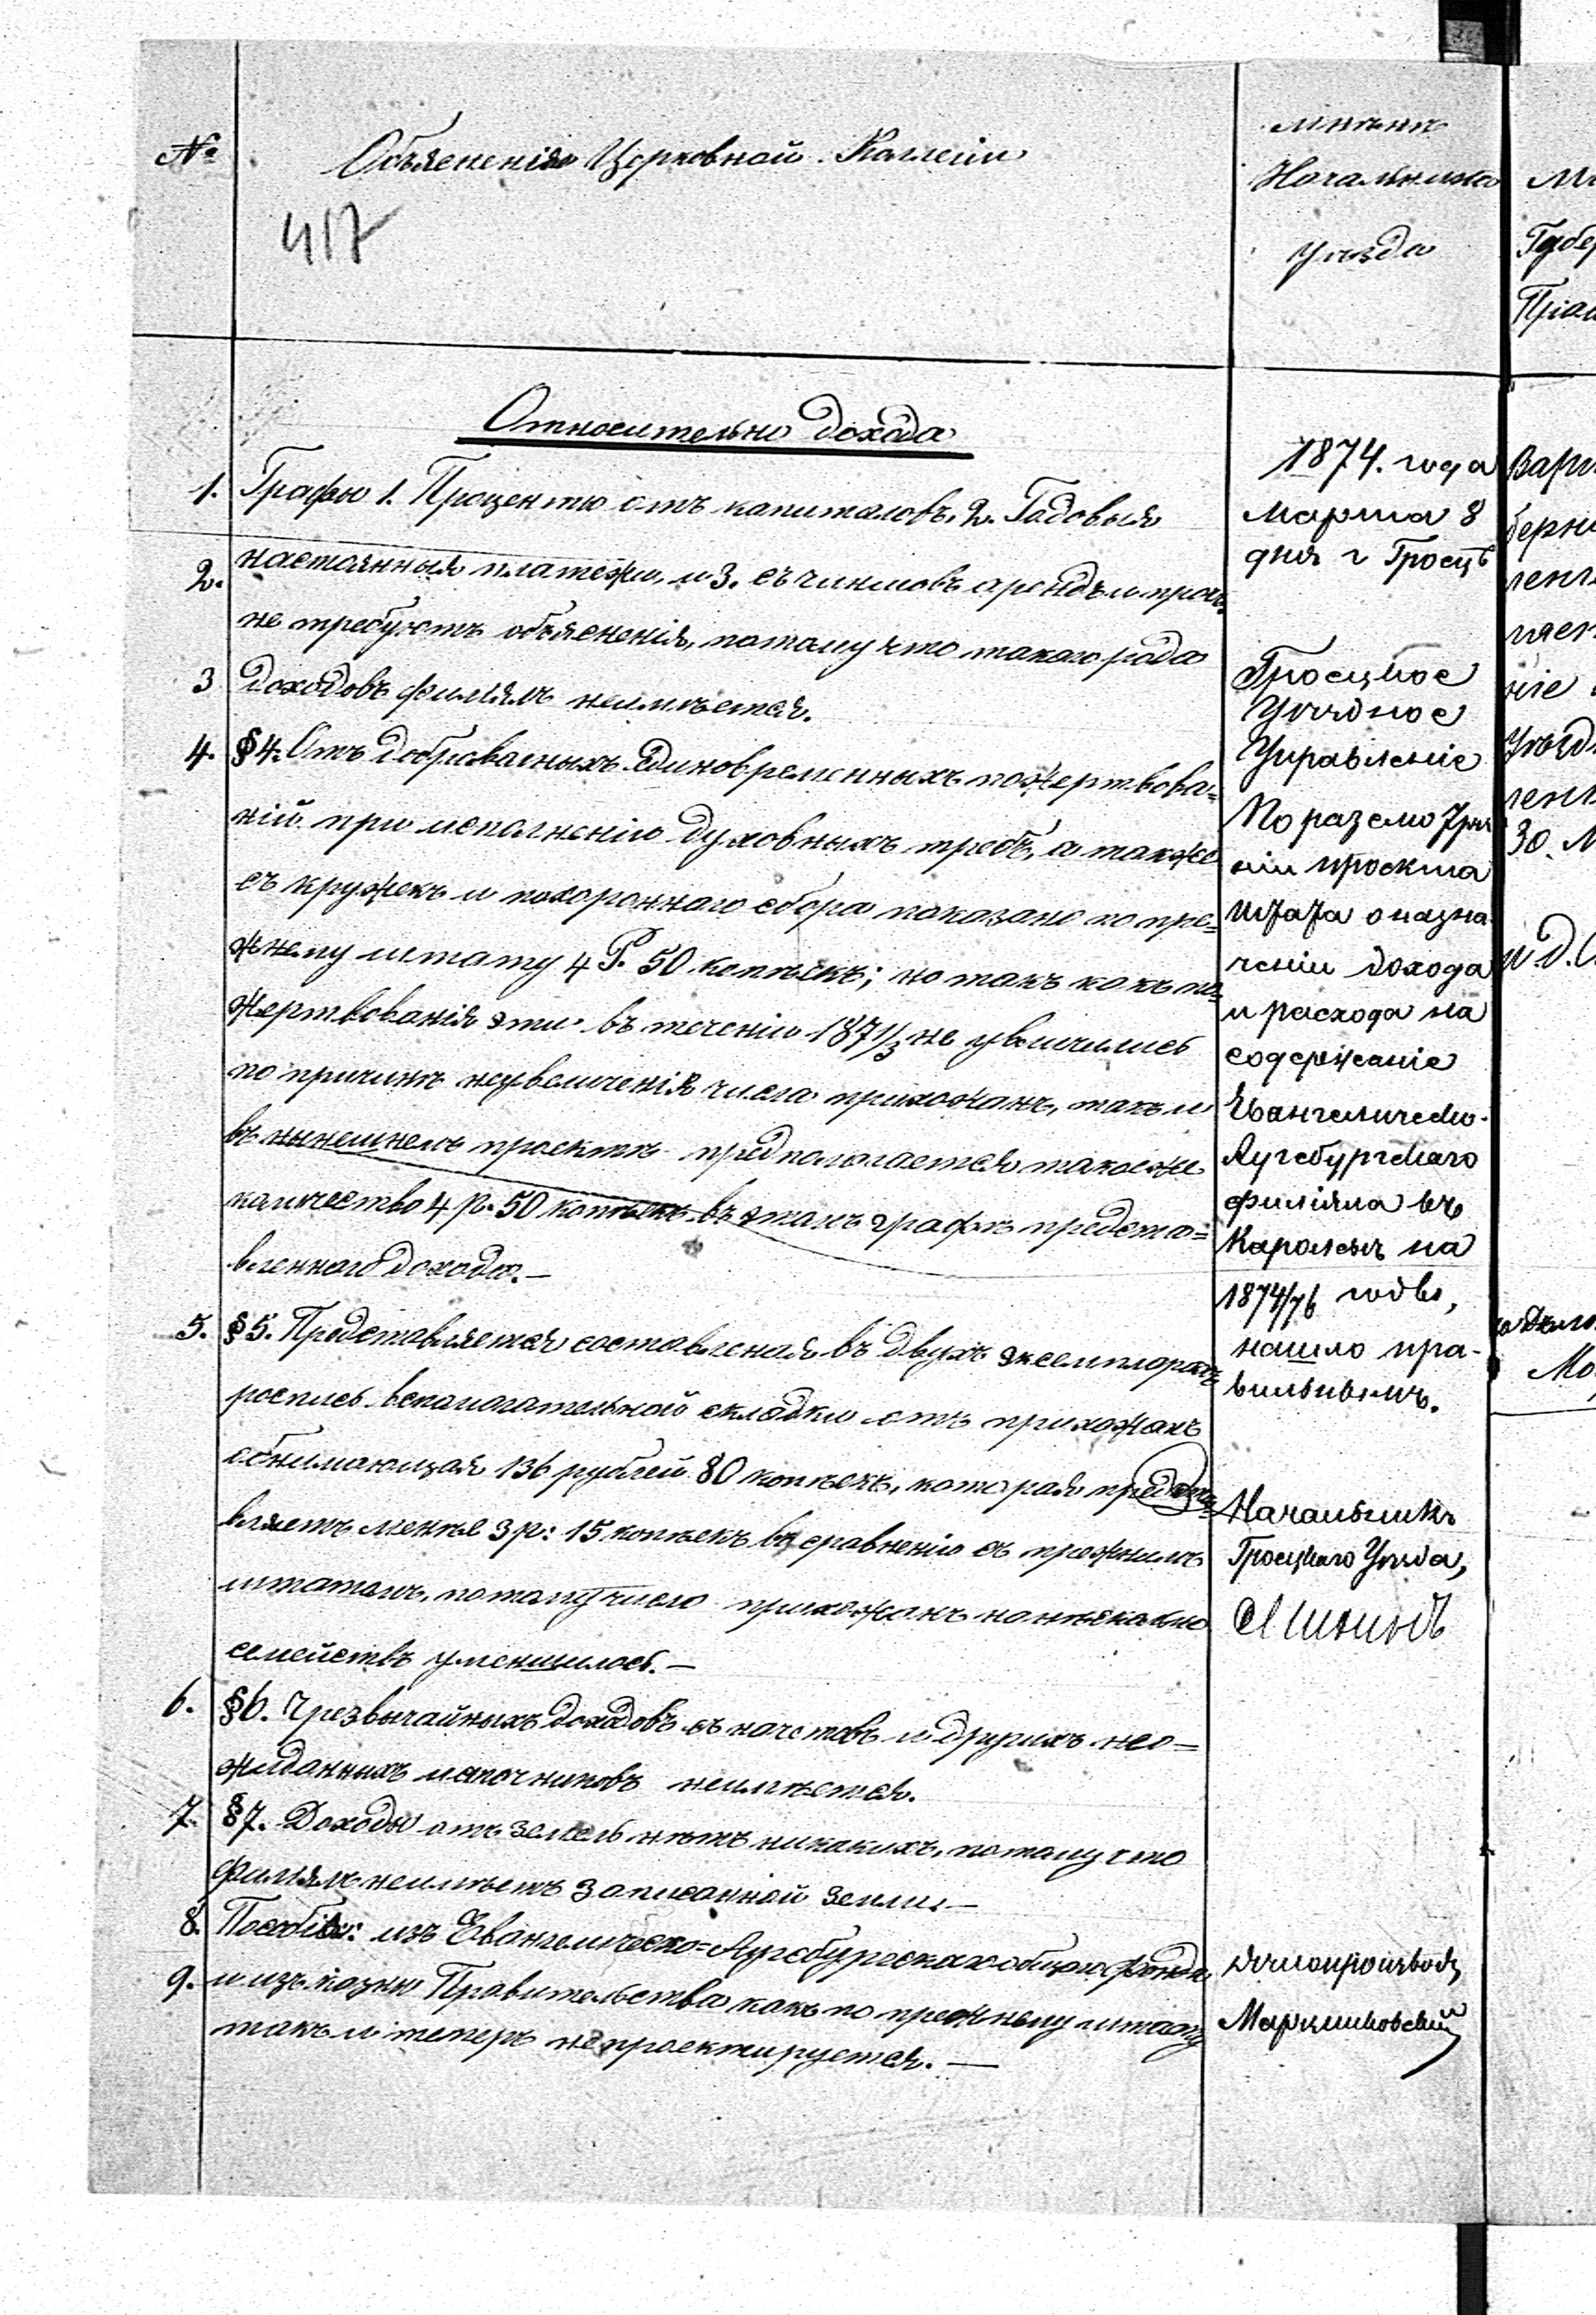 №
Объясненія Церковной Коллегіи
417
Мнѣніе
Начальника
Уѣзда
Относительно Дохода
1. Графы 1. Проценты отъ капиталовъ, 2. Годовыя
2. настоянныя платежи и 3. съ чиншовъ арендъ и проч.
не требуютъ объясненія, потому что такого рода
3 доходовъ филіялъ неимѣется.
4. §4. Отъ добровольныхъ единовременныхъ пожертвова=
ній при исполненіи духовныхъ требъ, а также
съ кружекъ и похороннаго сбора показано по пре=
жнему штату 4 Р. 50 копѣекъ; но такъ какъ по=
жертвованія эти въ теченіи 1871/3 не увеличились
по причинѣ неувеличенія числа прихожанъ, такъ и
въ нынешнемъ проектѣ предполагается такоеже
количество 4 р. 50 копѣекъ въ этомъ графѣ предста=
вленнаго дохода.—
5. §5. Представляется составленая въ двухъ экземплярахъ
роспись вспомогательной складки отъ прихожанъ
обнимающая 136 рублей 80 копѣекъ, которая предста=
вляетъ менѣе 3 р: 15 копѣекъ въ сравненіи съ прежнимъ
штатомъ, потому число прихожанъ на нѣсколко
семействъ уменшилось.—
6. §6. Чрезвычайныхъ доходовъ съ начетовъ и другихъ нео=
жиданныхъ источниковъ неимѣется.
7. §7. Доходы отъ земель нѣтъ никакихъ, потому что
филіялъ неимѣетъ записанной земли.—
8. Пособія: изъ Евангелическо=Аугсбургскаго общаго фонда
9. и изъ казны Правительства какъ по прежнему штату
такъ и теперь не проектируется.—
1874. года
Марта 8
дня г Гроецъ
Гроецкое
Уѣздное
Управленіе
По разсмотрѣ
ніи проекта
штата о назна
ченіи дохода
и расхода на
содержаніе
Евангелическо-
Аугсбургскаго
филіяла въ
на
1874/76 годы,
нашло пра-
вильнымъ.
Начальникъ
Гроецкаго Уѣзда,
Дѣлопроизвод
Марцинковскій